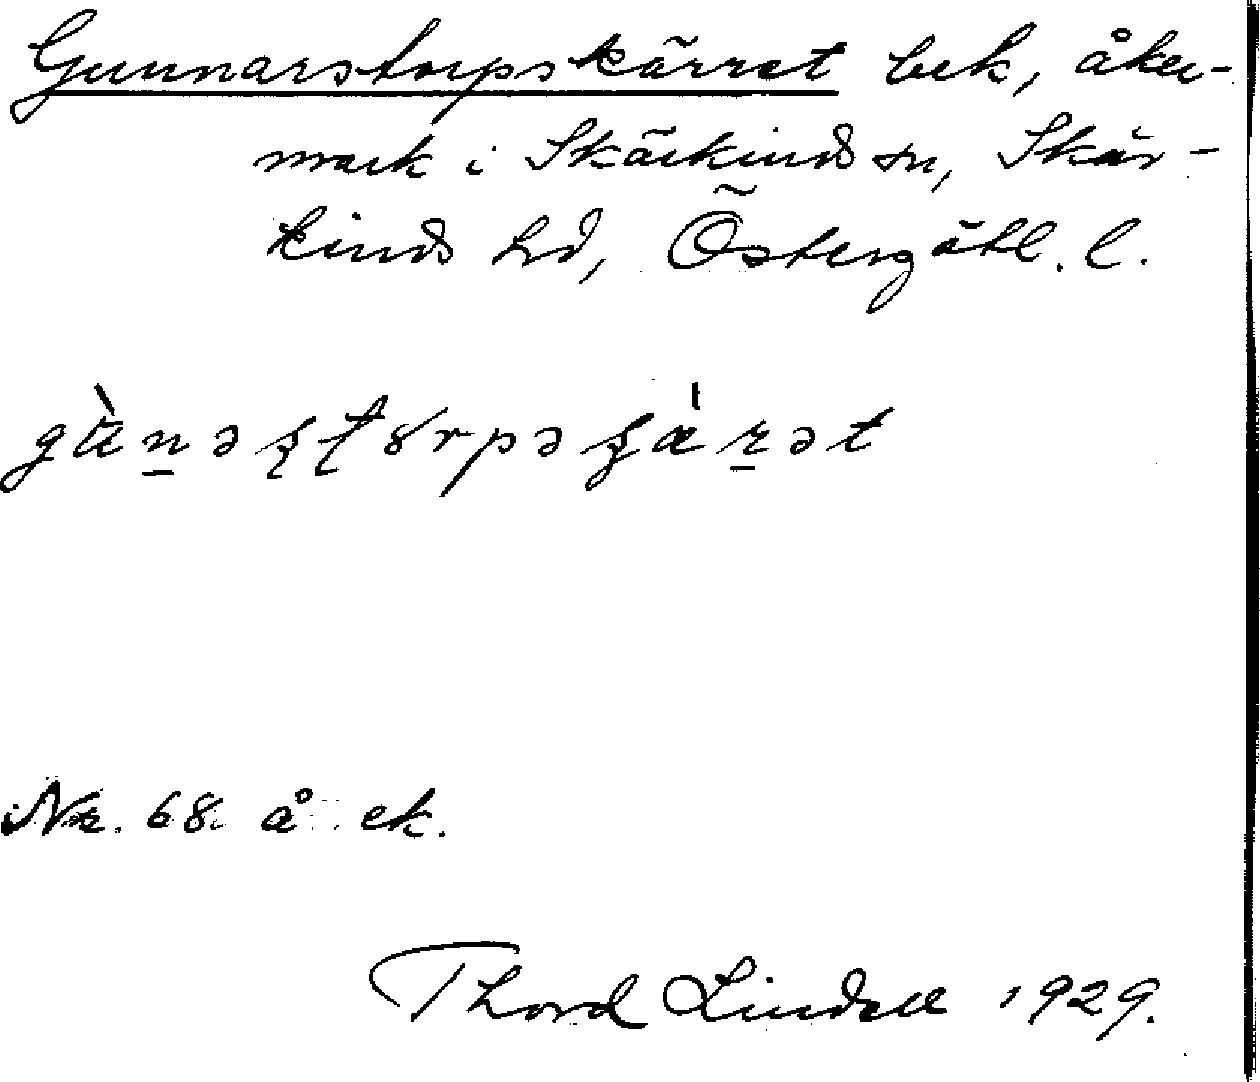 Gunnarstorpskärret bek, åker-
mark i Skärkinds sn, Skär-
kinds hd, Östergötl. l.
Nr. 68 å ek.
Thord Lindell 1929.